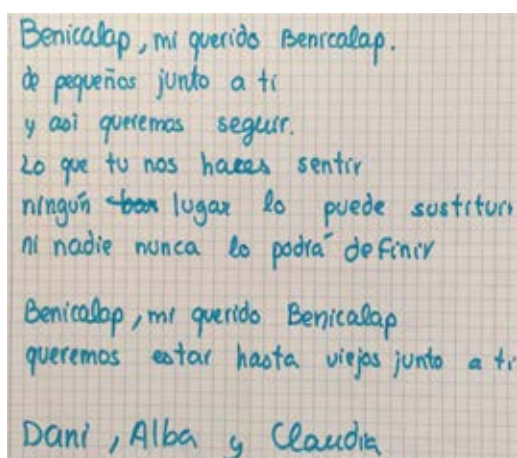 Benicalap, mi querido Benicalap.
de pequeños junto a ti
y asi queremos seguir.
Lo que tu nos haces sentir
ningún lugar lo puede sustituir
ni nadie nunca lo podrá definir
Benicalap, mi querido Benicalap
queremos estar hasta viejos junto a ti
Dani, Alba y Claudia